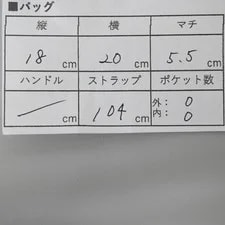 ■バッグ
縦 横 マチ
18cm 20cm 5.5cm
ハンドル ストラップ ポケット数
／cm 104cm 外：0
内：0